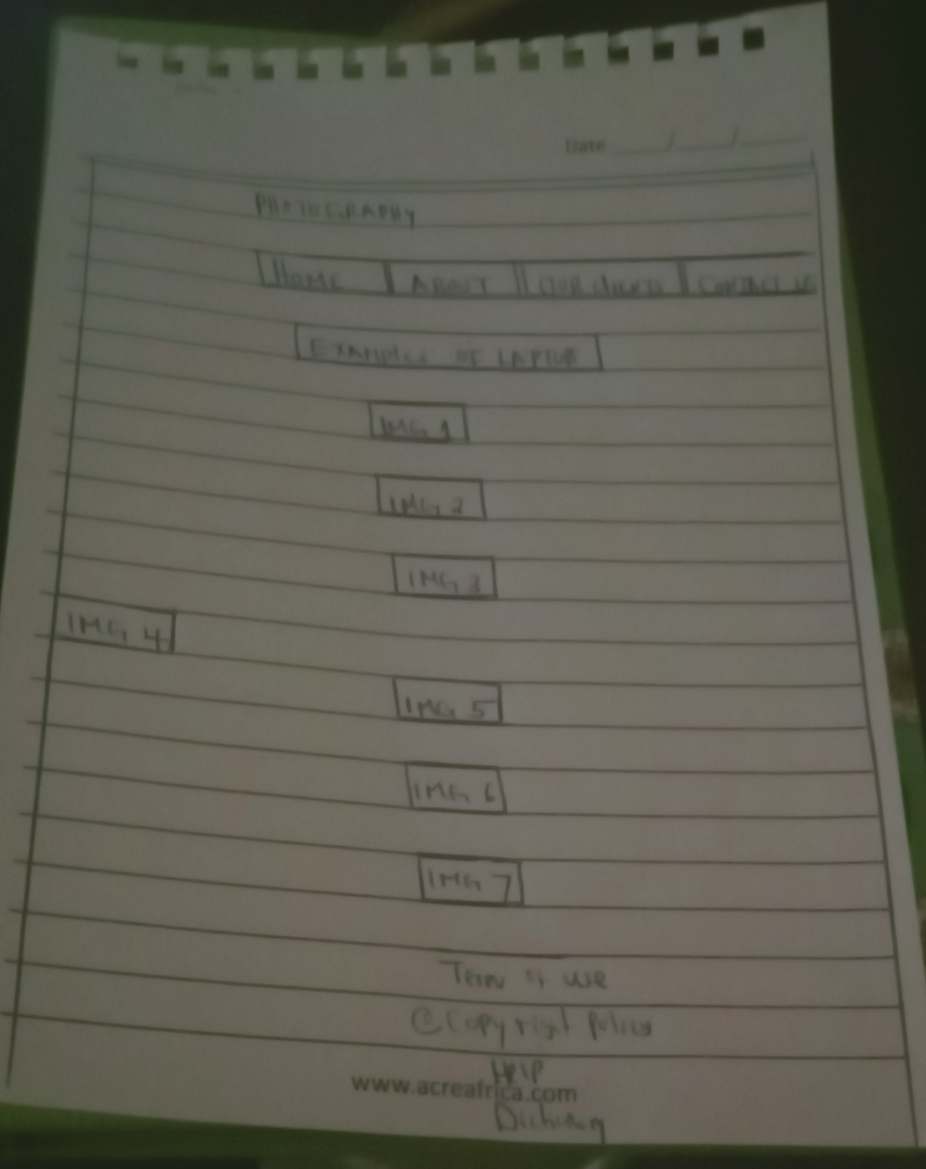 Date
PHOTOGRAPHY
HOME ABOUT OUR clients CONTACT US
EXAMPLES OF LAPTOP
IMG 1
IMG 2
IMG 3
IMG 4
IMG 5
IMG 6
IMG 7
Term of use
©Copyright policy
Help
www.acreafrica.com